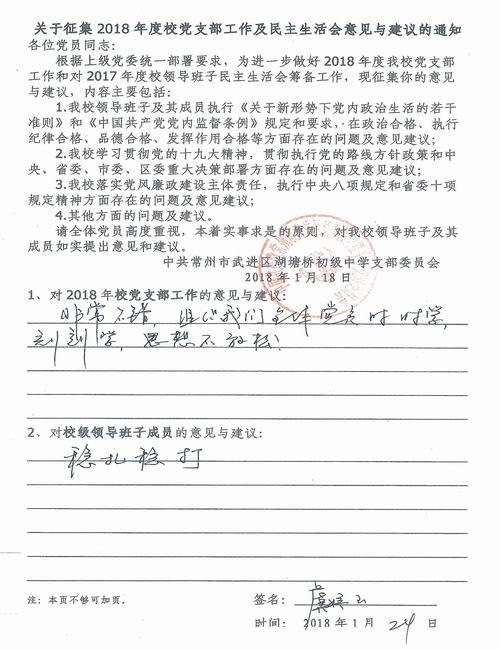 关于征集 2018 年度校党支部工作及民主生活会意见与建议的通知
各位党员同志：
根据上级党委统一部署要求，为进一步做好 2018 年度我校党支部
工作和对 2017 年度校领导班子民主生活会筹备工作，现征集你的意见
与建议，内容主要包括：
1.我校领导班子及其成员执行《关于新形势下党内政治生活的若干
准则》和《中国共产党党内监督条例》规定和要求，在政治合格、执行
纪律合格、品德合格、发挥作用合格等方面存在的问题及意见建议；
2.我校学习贯彻党的十九大精神，贯彻执行党的路线方针政策和中
央、省委、市委、区委重大决策部署方面存在的问题及意见建议；
3.我校落实党风廉政建设主体责任，执行中央八项规定和省委十项
规定精神方面存在的问题及意见建议；
4.其他方面的问题及建议。
请全体党员高度重视，本着实事求是的原则，对我校领导班子及其
成员如实提出意见和建议。
中共常州市武进区湖塘桥初级中学支部委员会
2018 年 1 月 18 日
1、对 2018 年校党支部工作的意见与建议：
非常不错，让我们全体党员时时学，
刻刻学，思想不放松！
2、对校级领导班子成员的意见与建议：
稳扎稳打
注：本页不够可加页。
签名：虞
时间：2018 年 1 月 24 日